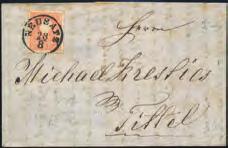 NEUSATZ
28/8
Herrn
Michael Krestics
Tittel